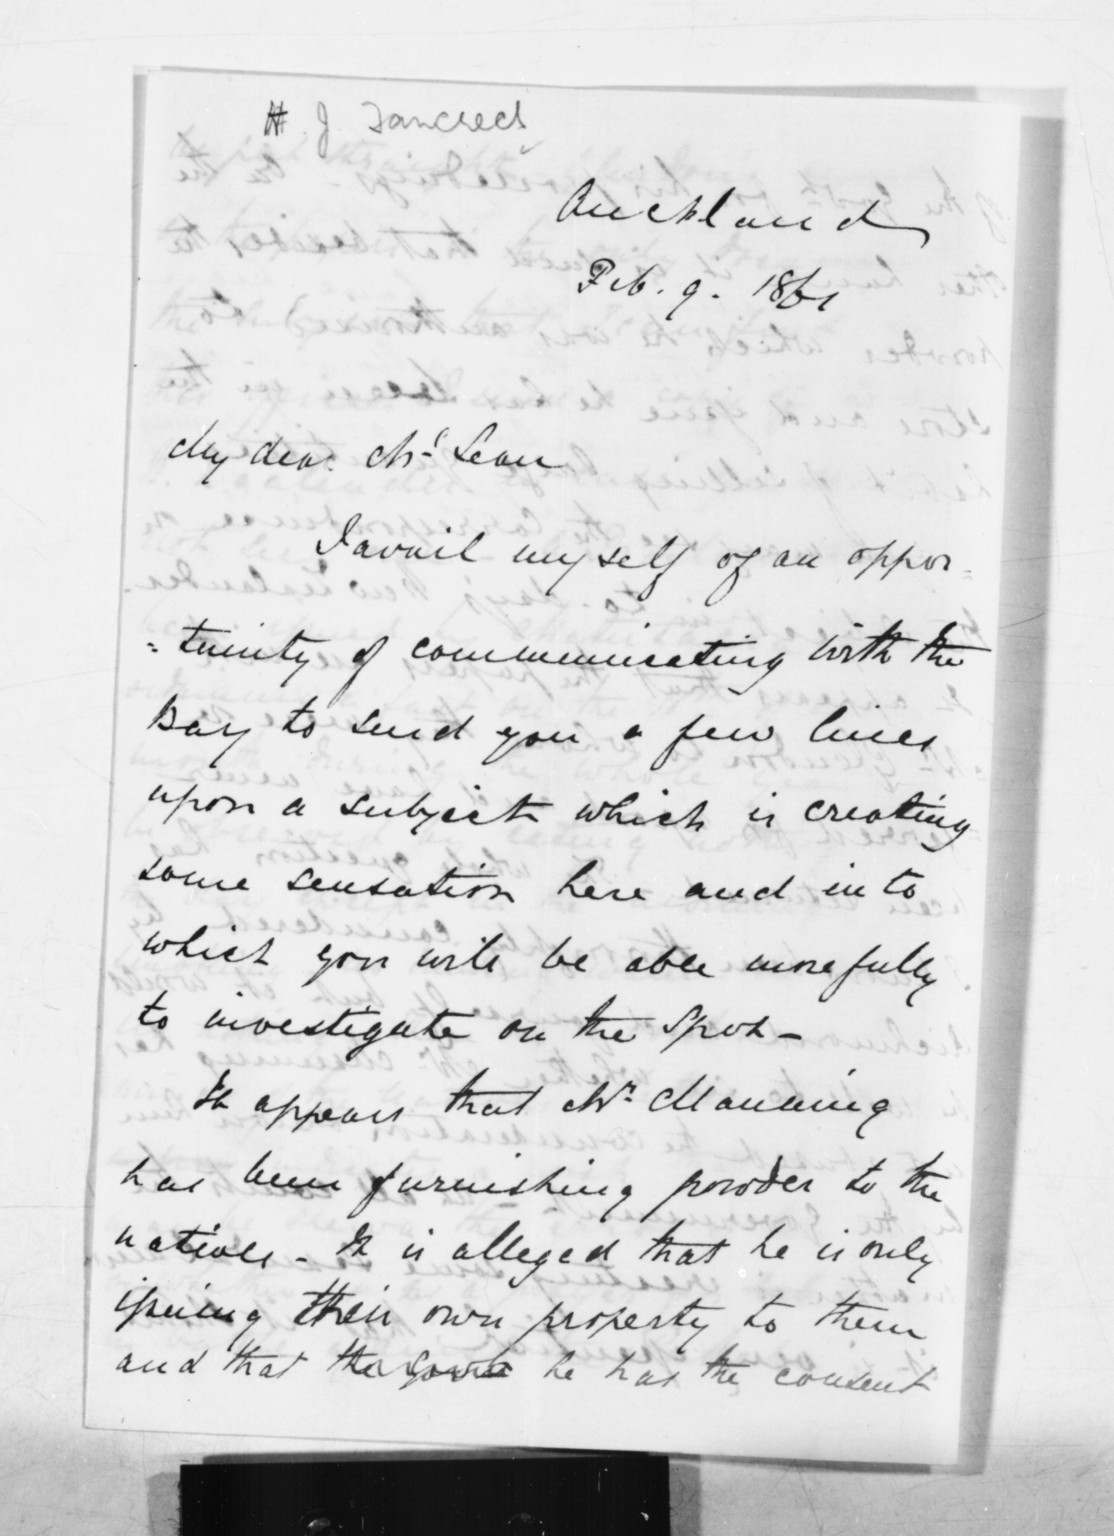 H. J. Tancred
Auckland
Feb. 9. 1861
My dear McLean
I avail myself of an oppor=
=tunity of communicating with the
Bay to send you a few lines
upon a subject which is creating
some sensation here and into
which you will be able more fully
to investigate on the spot -
It appears that Mr Manning
has been furnishing powder to the
natives - It is alleged that he is only
issuing their own property to them
and that he has the consent